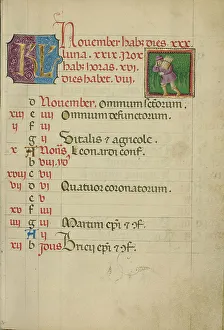 KL November hab; dies xxx.
luna. xxix. Nox
hab; horas. xvi.
dies habet. viij.
d November. Omnium sctorum.
xiij e iiij Omnium defunctorum.
ij f iij
g ij Vitalis & agricole.
x A Non̄s. Leonardi conf.
b viij. yđ
xviij c vij
vij d vi Quatuor coronatorum.
e v
xv f iiij
iiij g iij Martini epi & cf.
A ij
xij b ydus Bricij epi & cf.